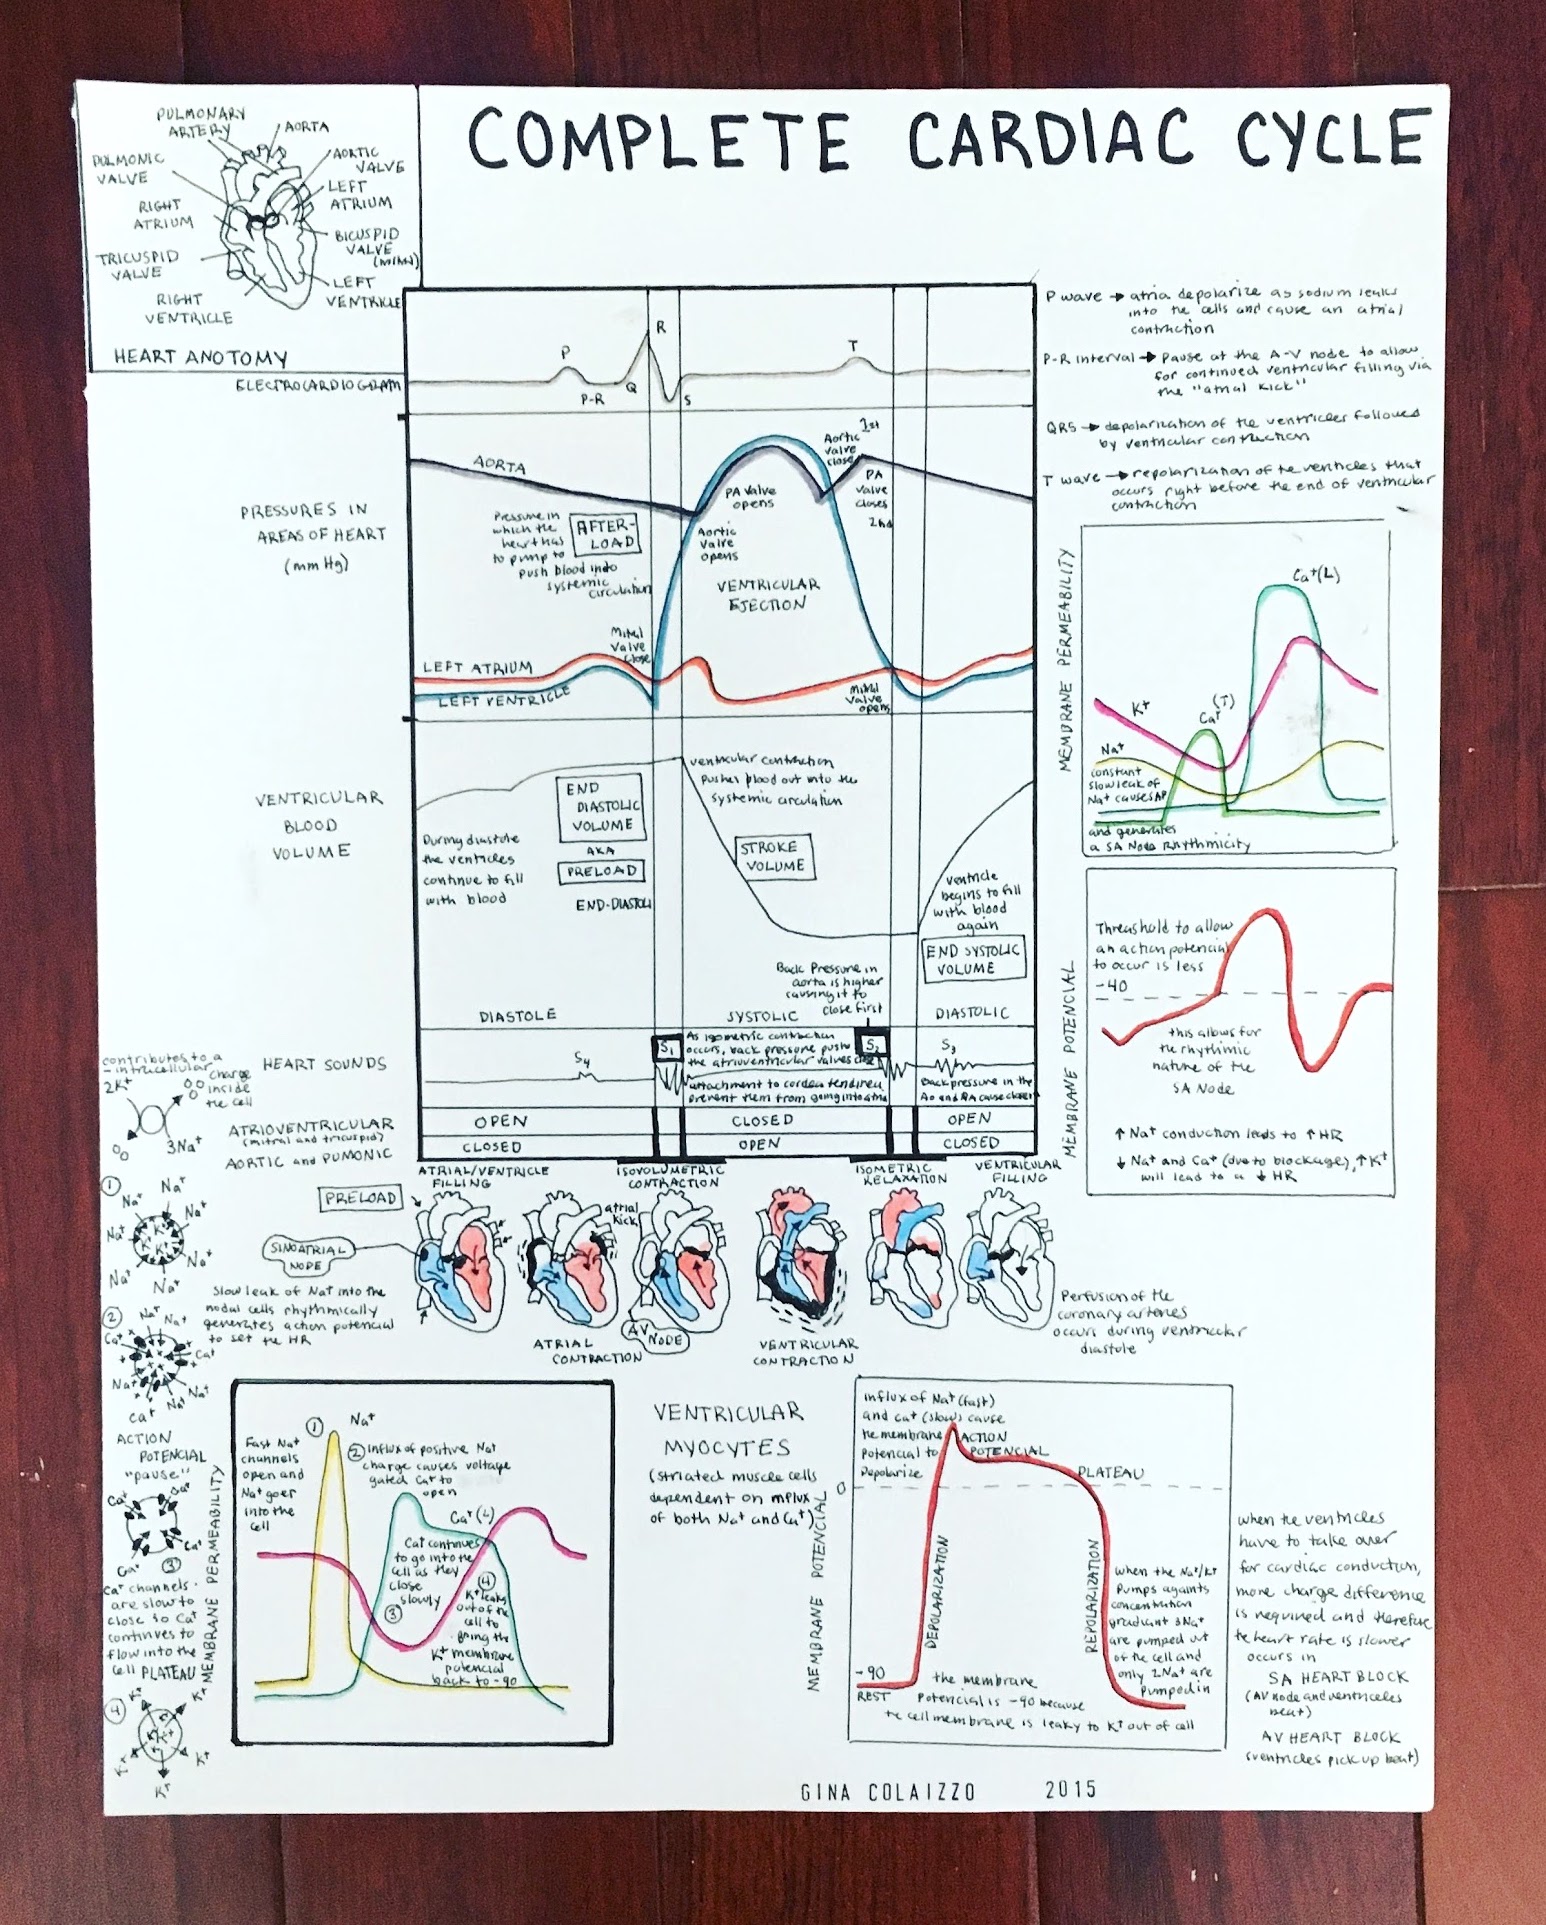 COMPLETE CARDIAC CYCLE
PULMONARY
ARTERY
AORTA
PULMONIC
VALVE
AORTIC
VALVE
LEFT
ATRIUM
RIGHT
ATRIUM
BICUSPID
VALVE
TRICUSPID
VALVE
LEFT
VENTRICLE
RIGHT
VENTRICLE
HEART ANOTOMY
ELECTROCARDIOGRAM
P
P-R
Q
R
S
T
P wave → atria depolarize as sodium leaks
into the cells and cause an atrial
contraction
P-R interval → Pause at the A-V node to allow
for continued ventricular filling via
the "atrial kick"
QRS → depolarization of the ventricles followed
by ventricular contraction
T wave → repolarization of the ventricles that
occurs right before the end of ventricular
contraction
PRESSURES IN
AREAS OF HEART
(mm Hg)
AORTA
Pressure in
which the
heart has
to pump to
push blood into
systemic
circulation
AFTER-
LOAD
PA valve
opens
Aortic
valve
opens
1st
Aortic
valve
close
PA
valve
closes
2nd
VENTRICULAR
EJECTION
Mitral
valve
close
LEFT ATRIUM
LEFT VENTRICLE
Mitral
valve
opens
VENTRICULAR
BLOOD
VOLUME
During diastole
the ventricles
continue to fill
with blood
END
DIASTOLIC
VOLUME
AKA
PRELOAD
END-DIASTOLI
ventricular contraction
pushes blood out into the
systemic circulation
STROKE
VOLUME
ventricle
begins to fill
with blood
again
END SYSTOLIC
VOLUME
Back Pressure in
aorta is higher
causing it to
close first
DIASTOLE
SYSTOLIC
DIASTOLIC
HEART SOUNDS
S4
S1
As isometric contraction
occurs, back pressure push
the atrioventricular valves close
attachment to cordea tendineu
prevent them from going into atria
S2
S3
Back pressure in the
Ao and PA cause closer
ATRIOVENTRICULAR
(mitral and tricuspid)
AORTIC and PUMONIC
OPEN
CLOSED
OPEN
CLOSED
OPEN
CLOSED
ATRIAL/VENTRICLE
FILLING
ISOVOLUMETRIC
CONTRACTION
ISOMETRIC
RELAXATION
VENTRICULAR
FILLING
PRELOAD
atrial
kick
SINOATRIAL
NODE
Slow leak of Na+ into the
nodal cells rhythmically
generates action potencial
to set the HR
ATRIAL
CONTRACTION
AV NODE
VENTRICULAR
CONTRACTION
Perfusion of the
coronary arteries
occurs during ventricular
diastole
MEMBRANE PERMEABILITY
Ca+(L)
K+
(T)
Ca+
Na+
constant
slow leak of
Na+ causes AP
and generates
a SA Node Rhythmicity
MEMBRANE POTENCIAL
Threashold to allow
an action potencial
to occur is less
-40
this allows for
the rhythmic
nature of the
SA Node
↑ Na+ conduction leads to ↑ HR
↓ Na+ and Ca+ (due to blockage), ↑ K+
will lead to a ↓ HR
contributes to a
- intracellular
charge
inside
the cell
2K+
3Na+
①
Na+
Na+
Na+
Na+
Na+
Na+
Na+
K+
②
Na+
Na+
Ca+
Ca+
Na+
Na+
Na+
Ca+
ACTION
POTENCIAL
"pause"
Ca+
Ca+
Ca+
Ca+
③
Ca+ channels
are slow to
close so Ca+
continues to
flow into the
cell PLATEAU
④
K+
K+
K+
K+
K+
K+
MEMBRANE PERMEABILITY
①
Na+
Fast Na+
channels
open and
Na+ goes
into the
cell
② influx of positive Na+
charge causes voltage
gated Ca+ to
open
Ca+(L)
Ca+ continues
to go into the
cell as they
close
slowly
③
④
K+ leaks
out of the
cell to
bring the
K+ membrane
potencial
back to -90
VENTRICULAR
MYOCYTES
(striated muscle cells
dependent on influx
of both Na+ and Ca+)
MEMBRANE POTENCIAL
influx of Na+ (fast)
and Ca+ (slow) cause
the membrane
Potencial to
Depolarize
ACTION
POTENCIAL
PLATEAU
0
DEPOLARIZATION
REPOLARIZATION
when the Na+/K+
Pumps againts
concentration
gradiant 3Na+
are pumped out
of the cell and
only 2Na+ are
pumped in
-90
REST
the membrane
Potencial is -90 because
the cell membrane is leaky to K+ out of cell
when the ventricles
have to take over
for cardiac conduction,
more charge difference
is required and therefore
the heart rate is slower
occurs in
SA HEART BLOCK
(AV node and ventriceles
beat)
AV HEART BLOCK
(ventricles pick up beat)
GINA COLAIZZO 2015